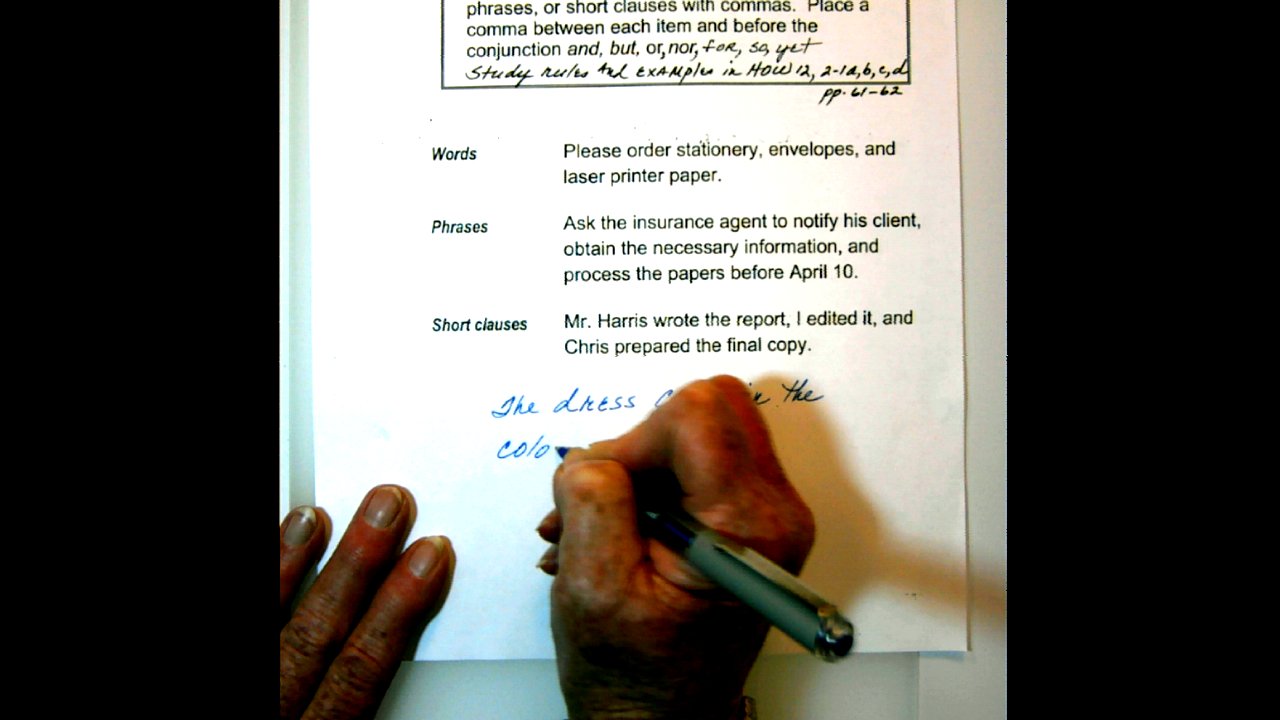 phrases, or short clauses with commas. Place a
comma between each item and before the
conjunction and, but, or, nor, for, so, yet
Study rules and examples in HOW 12, 2-1a, b, c, d
pp. 61-62
Words
Please order stationery, envelopes, and
laser printer paper.
Phrases
Ask the insurance agent to notify his client,
obtain the necessary information, and
process the papers before April 10.
Short clauses
Mr. Harris wrote the report, I edited it, and
Chris prepared the final copy.
The dress in the
colo